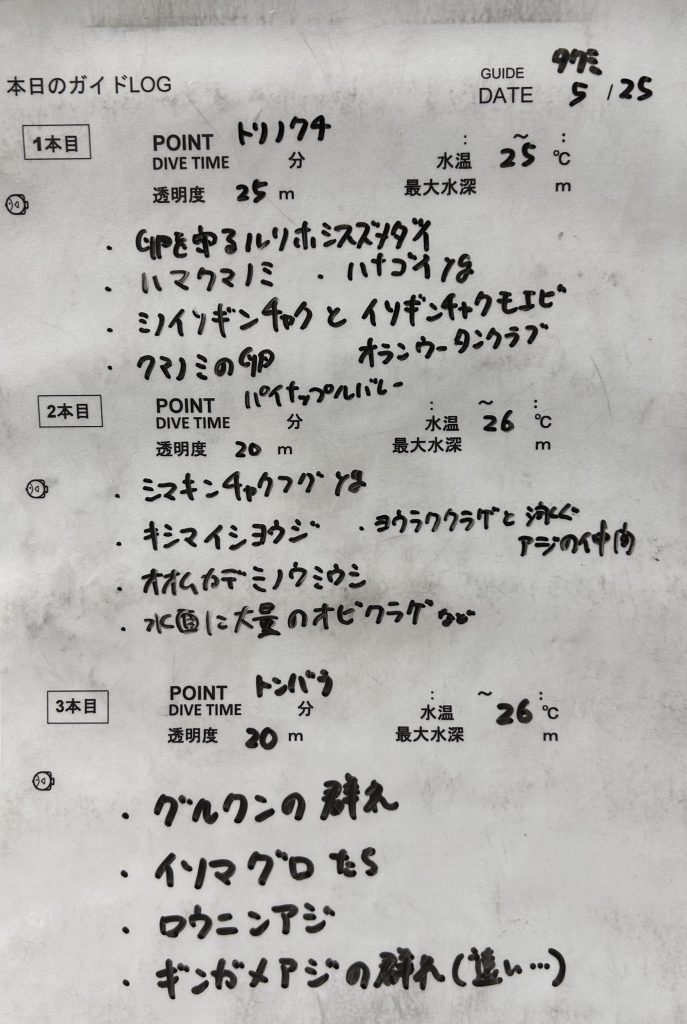 本日のガイドLOG
GUIDE タクミ
DATE 5 / 25
1本目
POINT トリノクチ
DIVE TIME 分
: ～ :
水温 25 ℃
透明度 25 m
最大水深 m
・卵を守るルリホシスズメダイ
・ハマクマノミ ・ハナゴイyg
・ミノイソギンチャクとイソギンチャクモエビ
・クマノミの卵 オランウータンクラブ
2本目
POINT パイナップルバレー
DIVE TIME 分
: ～ :
水温 26 ℃
透明度 20 m
最大水深 m
・シマキンチャクフグyg
・キシマイシヨウジ ・ヨウラククラゲと泳ぐ
アジの仲間
・オオムカデミノウミウシ
・水面に大量のオビクラゲなど
3本目
POINT トンバラ
DIVE TIME 分
: ～ :
水温 26 ℃
透明度 20 m
最大水深 m
・グルクンの群れ
・イソマグロたち
・ロウニンアジ
・ギンガメアジの群れ(遠い…)